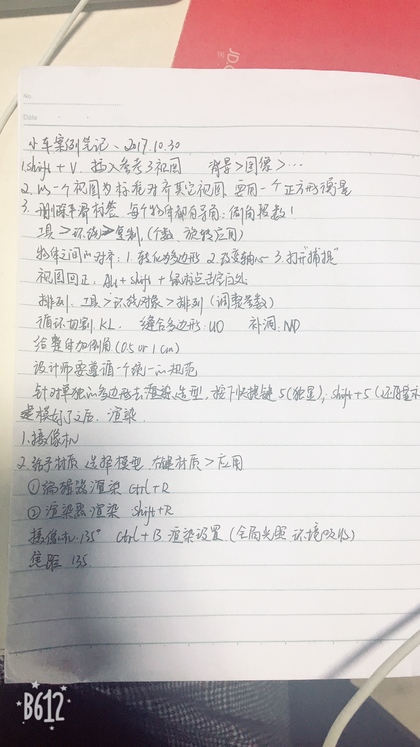 JD.C
No.
Date
小车案例笔记、2017.10.30
1.shift + V. 插入参考三视图 背景>图像>…
2.以一个视图为标准对齐其它视图 应用一个正方形衡量
3. 删除平滑标签 每个物体都有导角:倒角段数!
工具>环绕>复制,(个数 旋转应用)
物体之间的对齐:1.转成多边形 2.改变轴心 3.打开"捕捉"
视图回正:Alt + shift + 鼠标点击空白处
排列:工具>环绕对象>排列(调整参数)
循环切割.KL. 缝合多边形:UO 补洞.ND
给整体加倒角(0.5 or 1 cm)
设计师要遵循一个统一的规范
针对单独的多边形去渲染造型,按下快捷键5(独显),shift+5(还原显示
建模好了之后,渲染.
1.摄像机
2.给予材质 选择模型,右键材质>应用
①编辑器渲染 Ctrl+R
②渲染器渲染 Shift+R
摄像机.135° Ctrl+B 渲染设置(全局光照 环境吸收)
焦距 135
B612